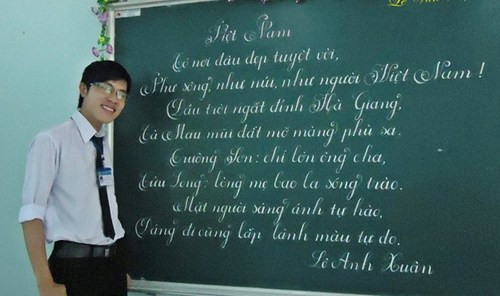 Việt Nam
Có nơi đâu đẹp tuyệt vời,
Như sông, như núi, như người Việt Nam!
Đầu trời ngất đỉnh Hà Giang,
Cà Mau mũi đất mỡ màng phù sa.
Trường Sơn: chí lớn ông cha,
Cửu Long: lòng mẹ bao la sóng trào.
Mặt người sáng ánh tự hào,
Dáng đi cũng lấp lánh màu tự do.
Lê Anh Xuân